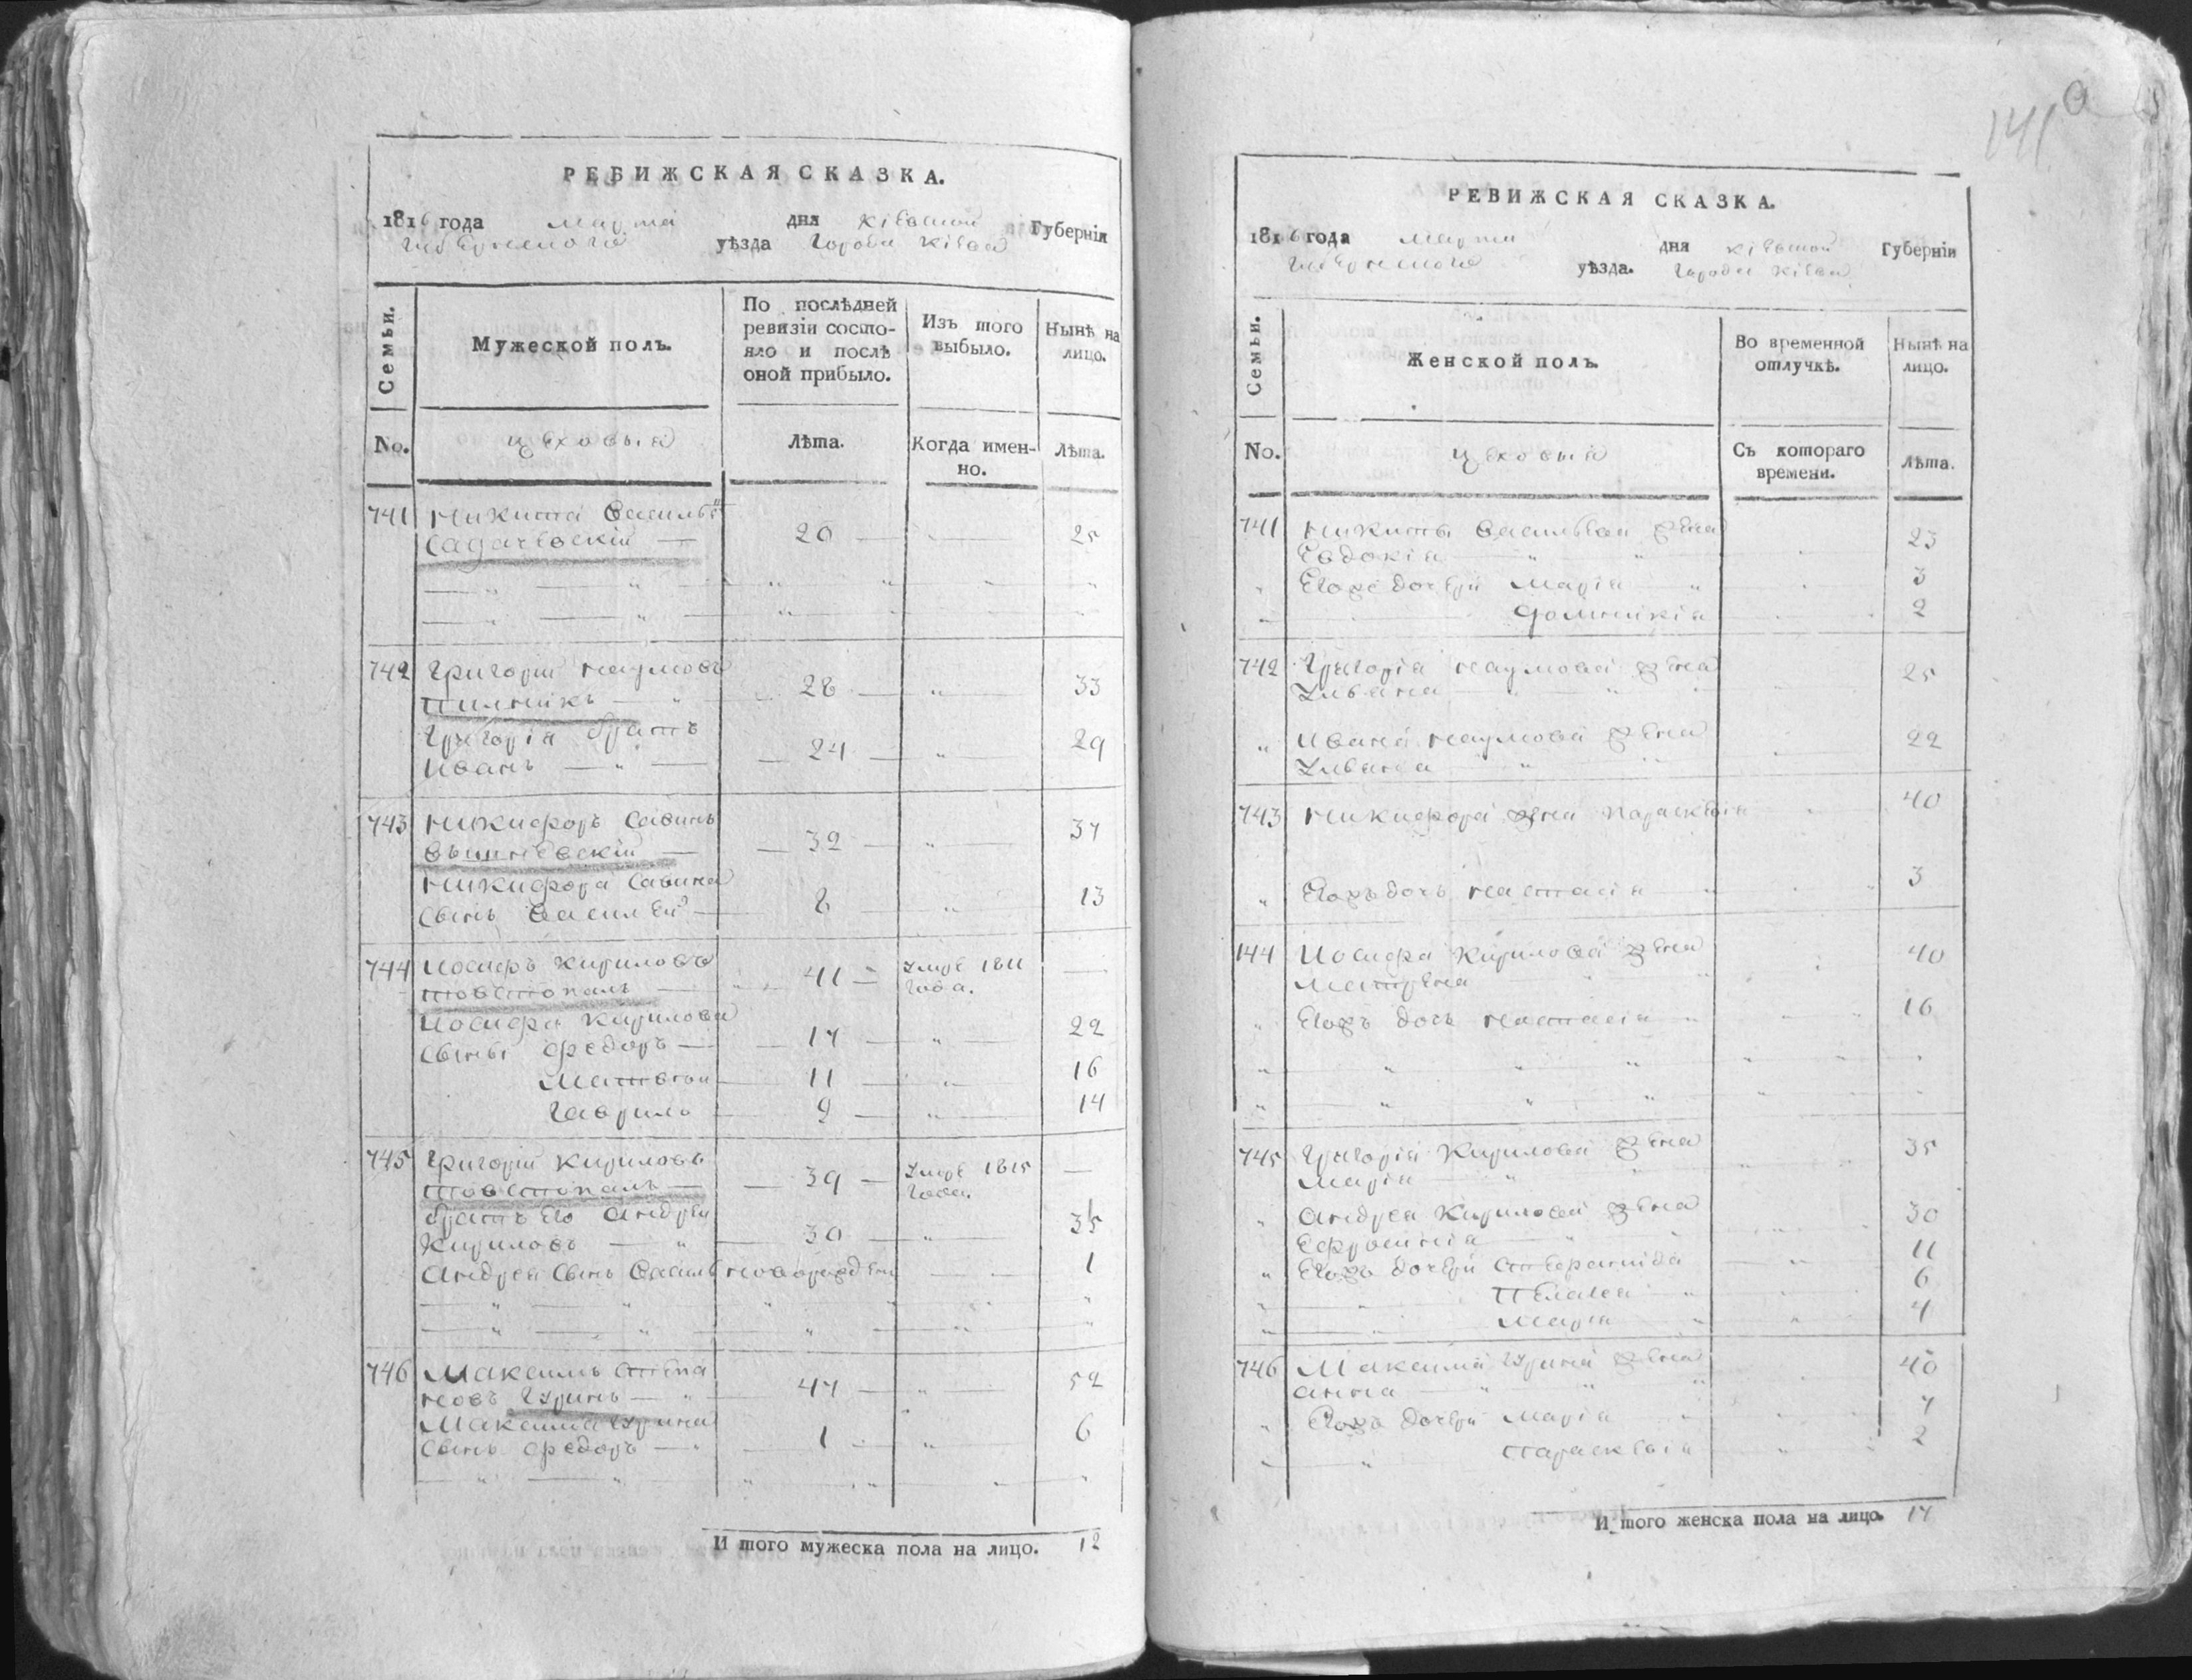 РЕВИЖСКАЯ СКАЗКА.
1816 года марта дня Кіевской Губерніи
Губернскаго уѣзда Города Кіева
Семьи.
Мужеской полъ.
По послѣдней ревизіи состо-
яло и послѣ оной прибыло.
Изъ того выбыло.
Нынѣ на лицо.
No. цеховыя Лѣта. Когда имен-
но. Лѣта.
741 Никита Васильевъ
Садачевскій — 20 — 25
742 Григорій Наумовъ
Пильникъ — 28 — 33
Григорія братъ
Иванъ — 24 — 29
743 Никифоръ Савинъ
Вышневскій — 32 — 37
Никифора Савина
сынъ Василей — 8 — 13
744 Иосифъ Кириловъ
Товстопалъ — 41 — умре 1811
года.
Иосифа Кирилова
сыны Федоръ — 17 — 22
Матвѣй — 11 — 16
Гаврило — 9 — 14
745 Григорій Кириловъ
Товстопалъ — 39 — умре 1815 —
года.
братъ его Андрей
Кириловъ — 30 — 35
Андрея сынъ Василь новорожденъ — 1
746 Максимъ Степа
новъ Гуринъ — 47 — 52
Максима Гурина
сынъ Федоръ — 1 — 6
И того мужеска пола на лицо. 12
141 а
РЕВИЖСКАЯ СКАЗКА.
1816 года марта дня Кіевской Губерніи
Губернскаго уѣзда. Города Кіева
Семьи.
Женской полъ.
Во временной отлучкѣ.
Нынѣ на лицо.
No. цеховыя Съ котораго
времени. Лѣта.
741 Никиты Васильева жена
Евдокія 23
Егоже дочери Марія 3
Домникія 2
742 Григорія Наумова жена
Ульяна 25
Ивана Наумова жена
Ульяна 22
743 Никифора жена Параскевія 40
Егожъ дочь Настасія 3
744 Иосифа Кирилова жена
Матрена 40
Егожъ дочь Настасія 16
745 Григорія Кирилова жена
Марія 35
Андрея Кирилова жена
Ефросинія 30
Егожъ дочери Степанида 11
Пелагея 6
Марія 4
746 Максима Гурина жена
Анна 40
Егожъ дочери Марія 7
Параскевія 2
И того женска пола на лицо. 17